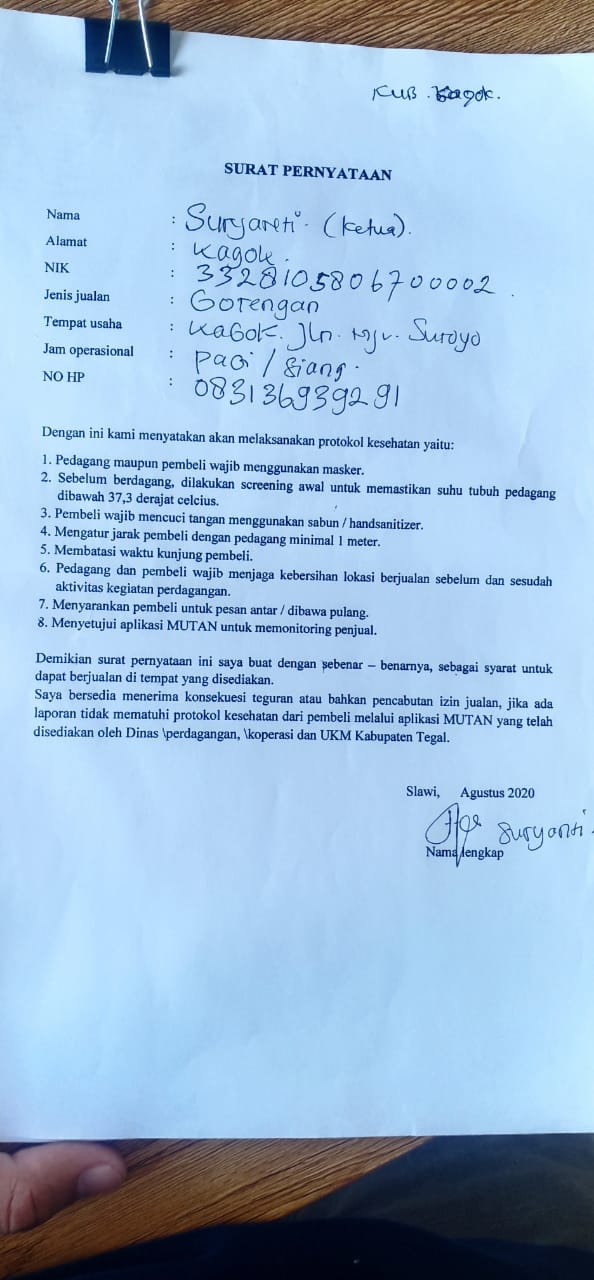 KUB. Kagok.
SURAT PERNYATAAN
Nama : Suryanti. (Ketua).
Alamat : Kagok.
NIK : 3328105806700002.
Jenis jualan : Gorengan
Tempat usaha : KaGok. Jln. Suroyo
Jam operasional : Pagi / Siang.
NO HP : 083136939291
Dengan ini kami menyatakan akan melaksanakan protokol kesehatan yaitu:
1. Pedagang maupun pembeli wajib menggunakan masker.
2. Sebelum berdagang, dilakukan screening awal untuk memastikan suhu tubuh pedagang
dibawah 37,3 derajat celcius.
3. Pembeli wajib mencuci tangan menggunakan sabun / handsanitizer.
4. Mengatur jarak pembeli dengan pedagang minimal 1 meter.
5. Membatasi waktu kunjung pembeli.
6. Pedagang dan pembeli wajib menjaga kebersihan lokasi berjualan sebelum dan sesudah
aktivitas kegiatan perdagangan.
7. Menyarankan pembeli untuk pesan antar / dibawa pulang.
8. Menyetujui aplikasi MUTAN untuk memonitoring penjual.
Demikian surat pernyataan ini saya buat dengan sebenar – benarnya, sebagai syarat untuk
dapat berjualan di tempat yang disediakan.
Saya bersedia menerima konsekuesi teguran atau bahkan pencabutan izin jualan, jika ada
laporan tidak mematuhi protokol kesehatan dari pembeli melalui aplikasi MUTAN yang telah
disediakan oleh Dinas \perdagangan, \koperasi dan UKM Kabupaten Tegal.
Slawi, Agustus 2020
Suryanti.
Nama lengkap